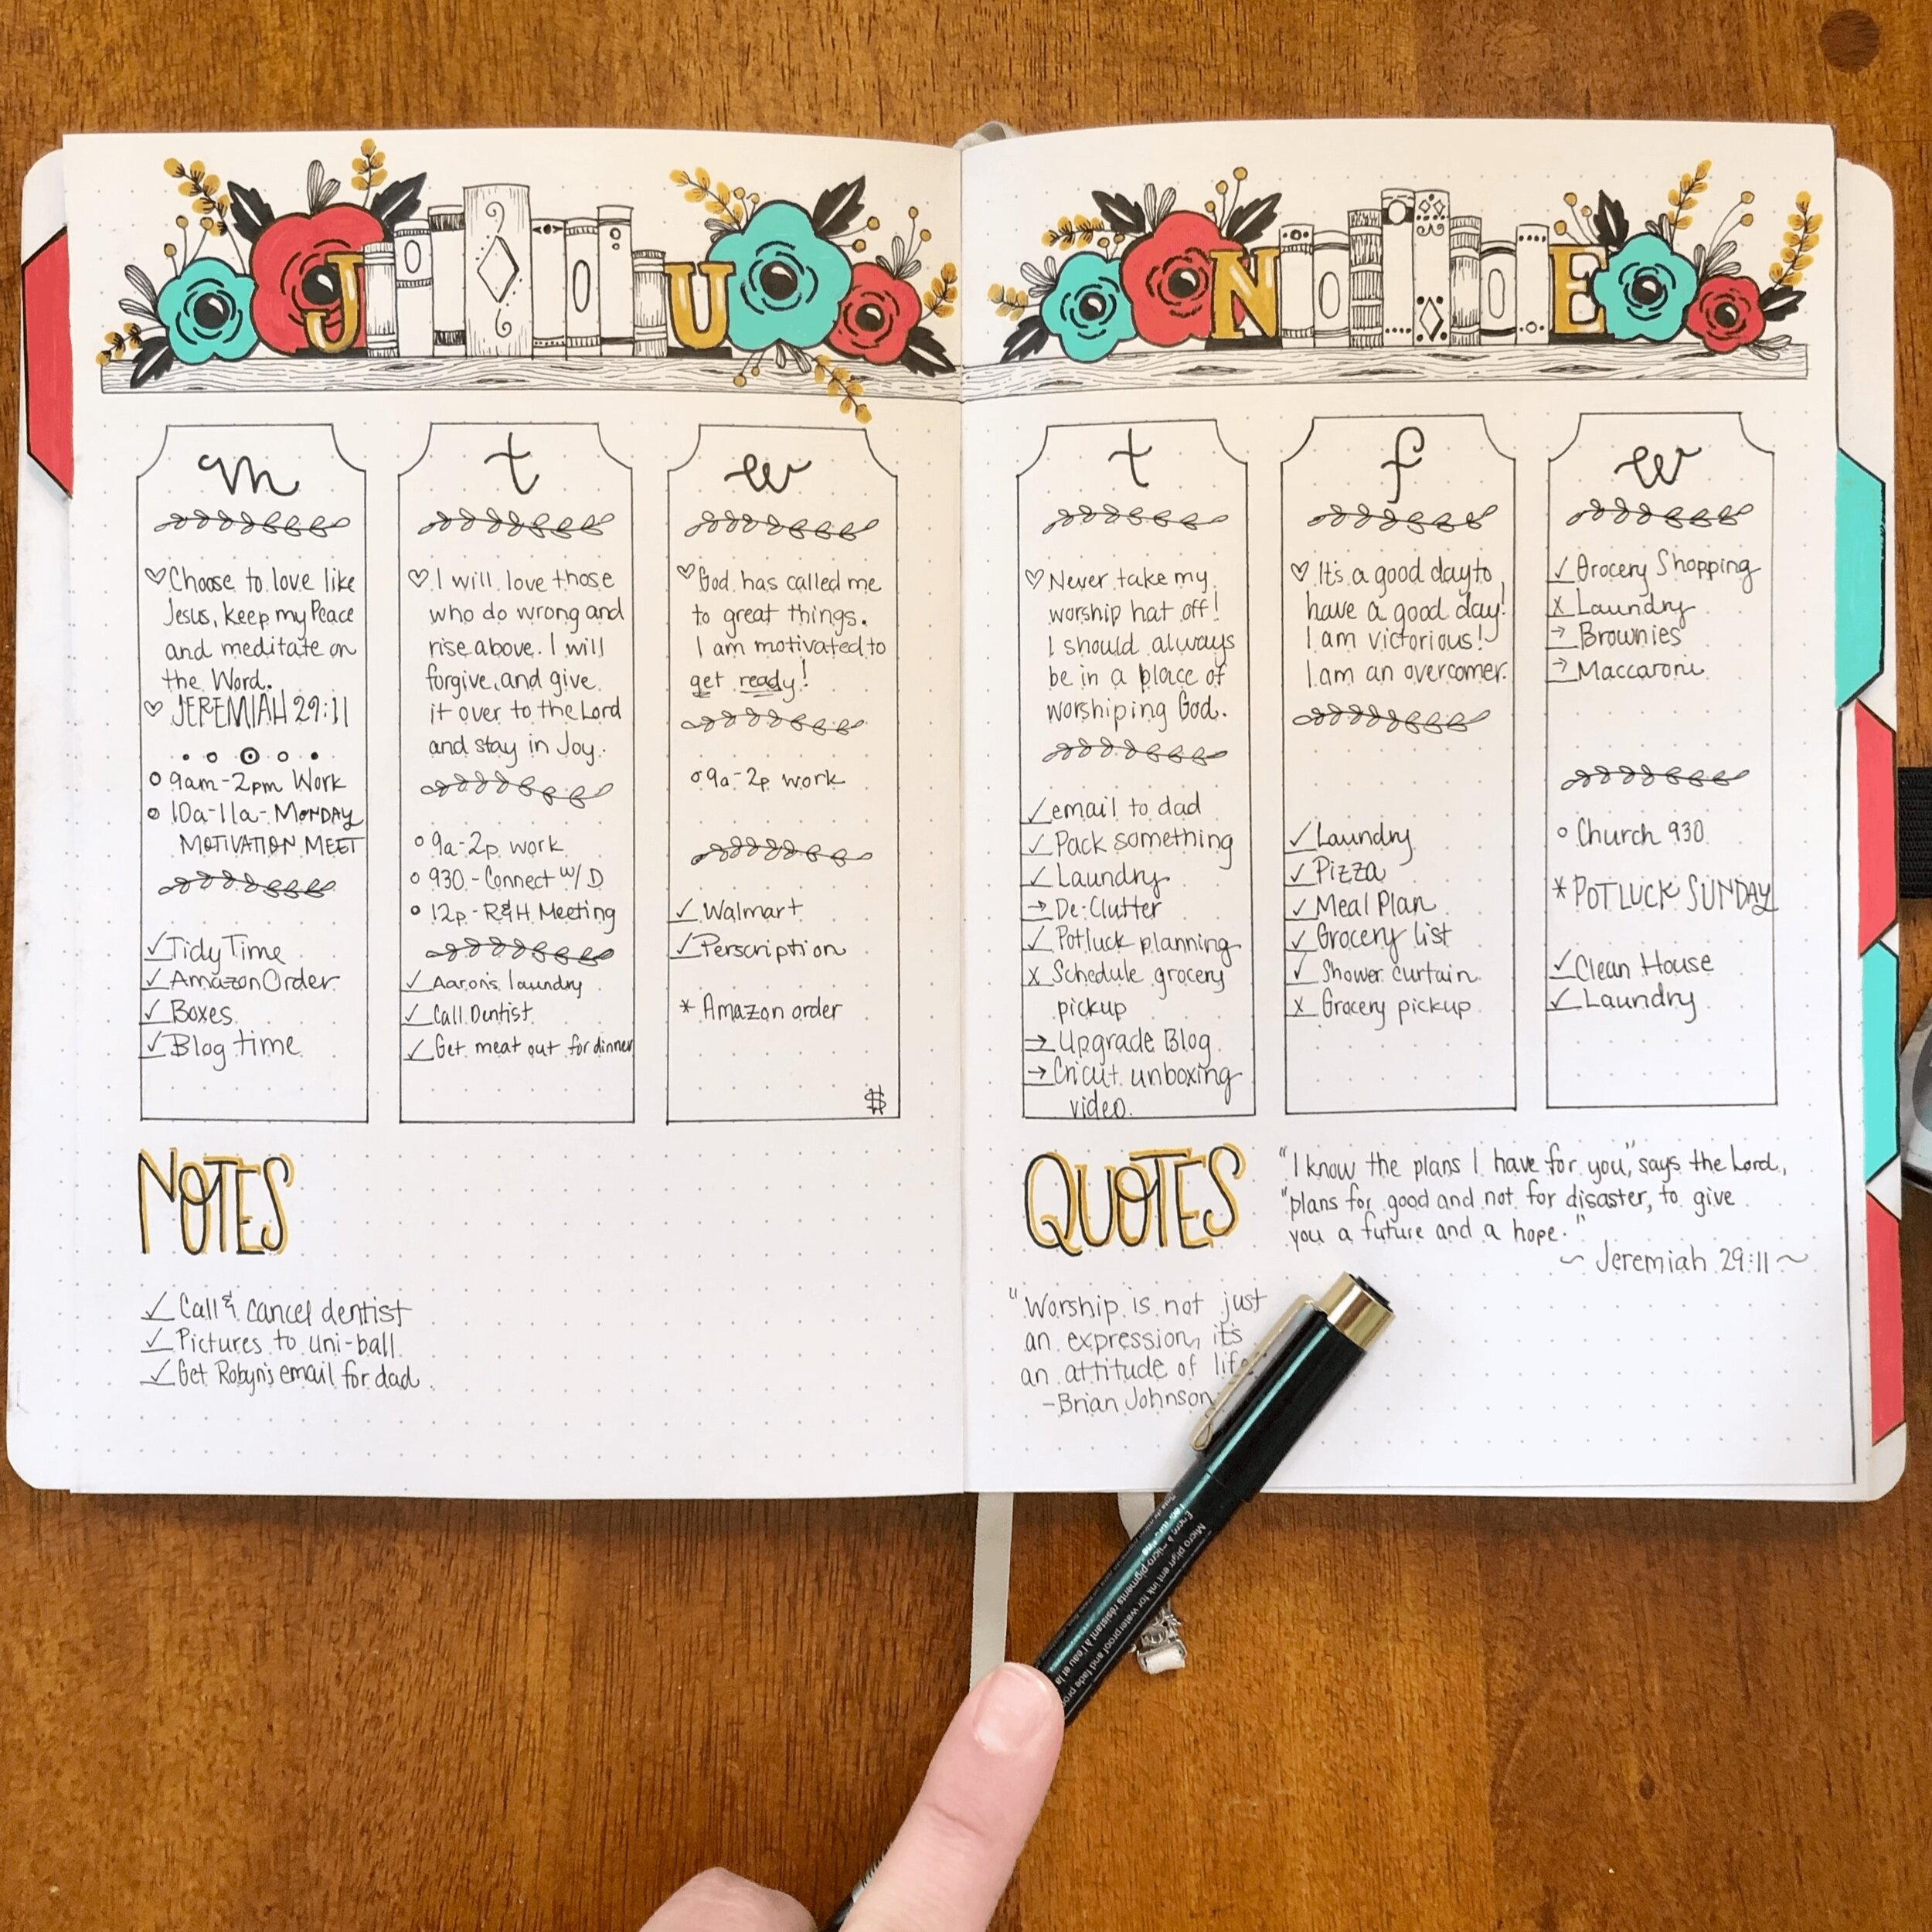 JU
NE
m
♡ Choose to love like
Jesus, keep my Peace
and meditate on
the Word.
♡ JEREMIAH 29:11
○ 9am-2pm Work
○ 10a-11a- MONDAY
MOTIVATION MEET
✓ Tidy Time
✓ Amazon Order
✓ Boxes
✓ Blog time
t
♡ I will love those
who do wrong and
rise above. I will
forgive, and give
it over to the Lord
and stay in Joy.
○ 9a-2p work
○ 930 - Connect w/ D
○ 12p - R&H Meeting
✓ Aaron's laundry
✓ Call Dentist
✓ Get meat out for dinner
w
♡ God has called me
to great things.
I am motivated to
get ready!
○ 9a-2p work
✓ Walmart
✓ Perscription
* Amazon order
$
t
♡ Never take my
worship hat off!
I should always
be in a place of
worshiping God.
✓ email to dad
✓ Pack something
✓ Laundry
→ De-Clutter
✓ Potluck planning
x Schedule grocery
pickup
→ Upgrade Blog
→ Cricut unboxing
video
f
♡ It's a good day to
have a good day!
I am victorious!
I am an overcomer.
✓ Laundry
✓ Pizza
✓ Meal Plan
✓ Grocery list
✓ Shower curtain
x Grocery pickup
w
✓ Grocery Shopping
x Laundry
→ Brownies
→ Maccaroni
○ Church 930
* POTLUCK SUNDAY
✓ Clean House
✓ Laundry
NOTES
✓ Call & cancel dentist
✓ Pictures to uni-ball
✓ Get Robyn's email for dad
QUOTES
"I know the plans I have for you," says the Lord,
"plans for good and not for disaster, to give
you a future and a hope."
~ Jeremiah 29:11 ~
"Worship is not just
an expression, it's
an attitude of life
- Brian Johnson
Micro pigment ink for waterproof and fade